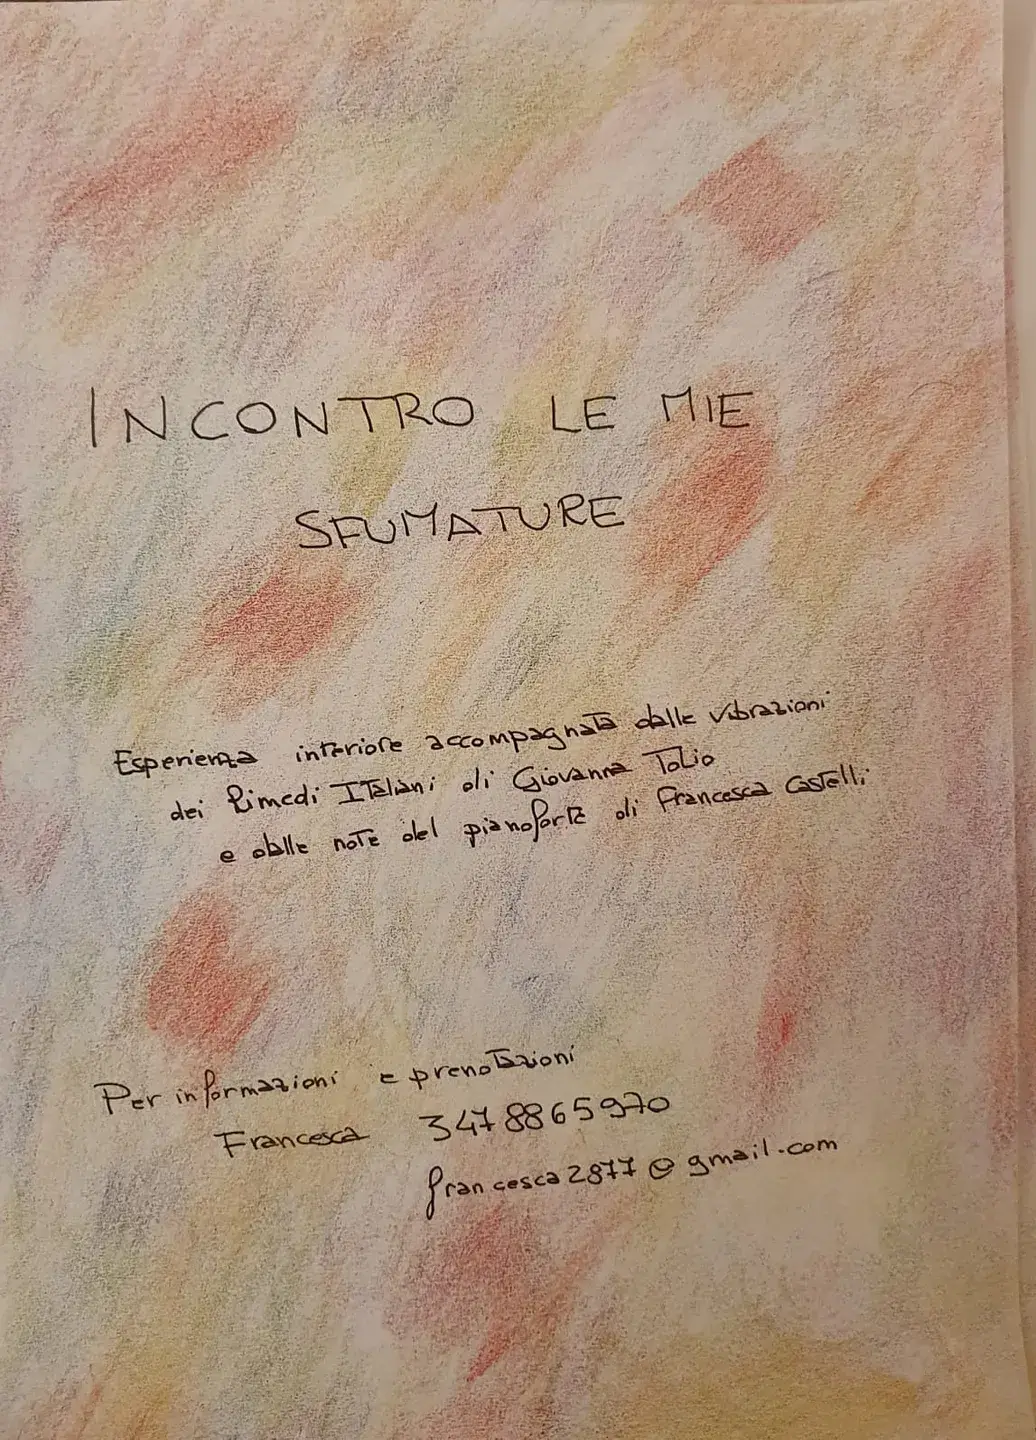 INCONTRO LE MIE
SFUMATURE
Esperienza interiore accompagnata dalle vibrazioni
dei Rimedi Italiani di Giovanna Tolio
e dalle note del pianoforte di Francesca Castelli
Per informazioni e prenotazioni
Francesca 3478865970
francesca2877@gmail.com